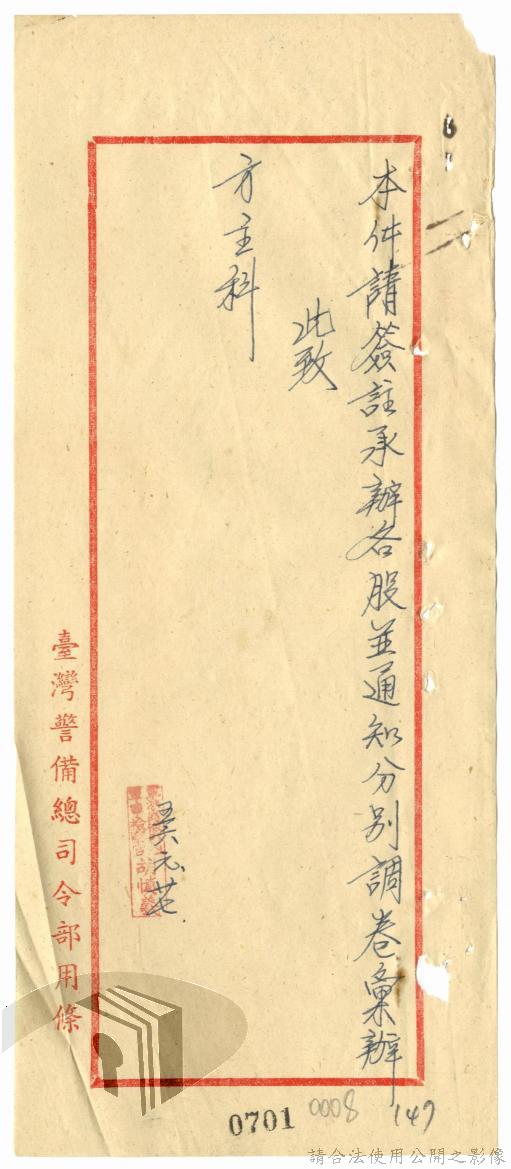 本件請簽註承辦各股並通知分別調卷彙辦
此致
方主科
臺灣警備總司令部用條
0701
0008
147
請合法使用公開之影像